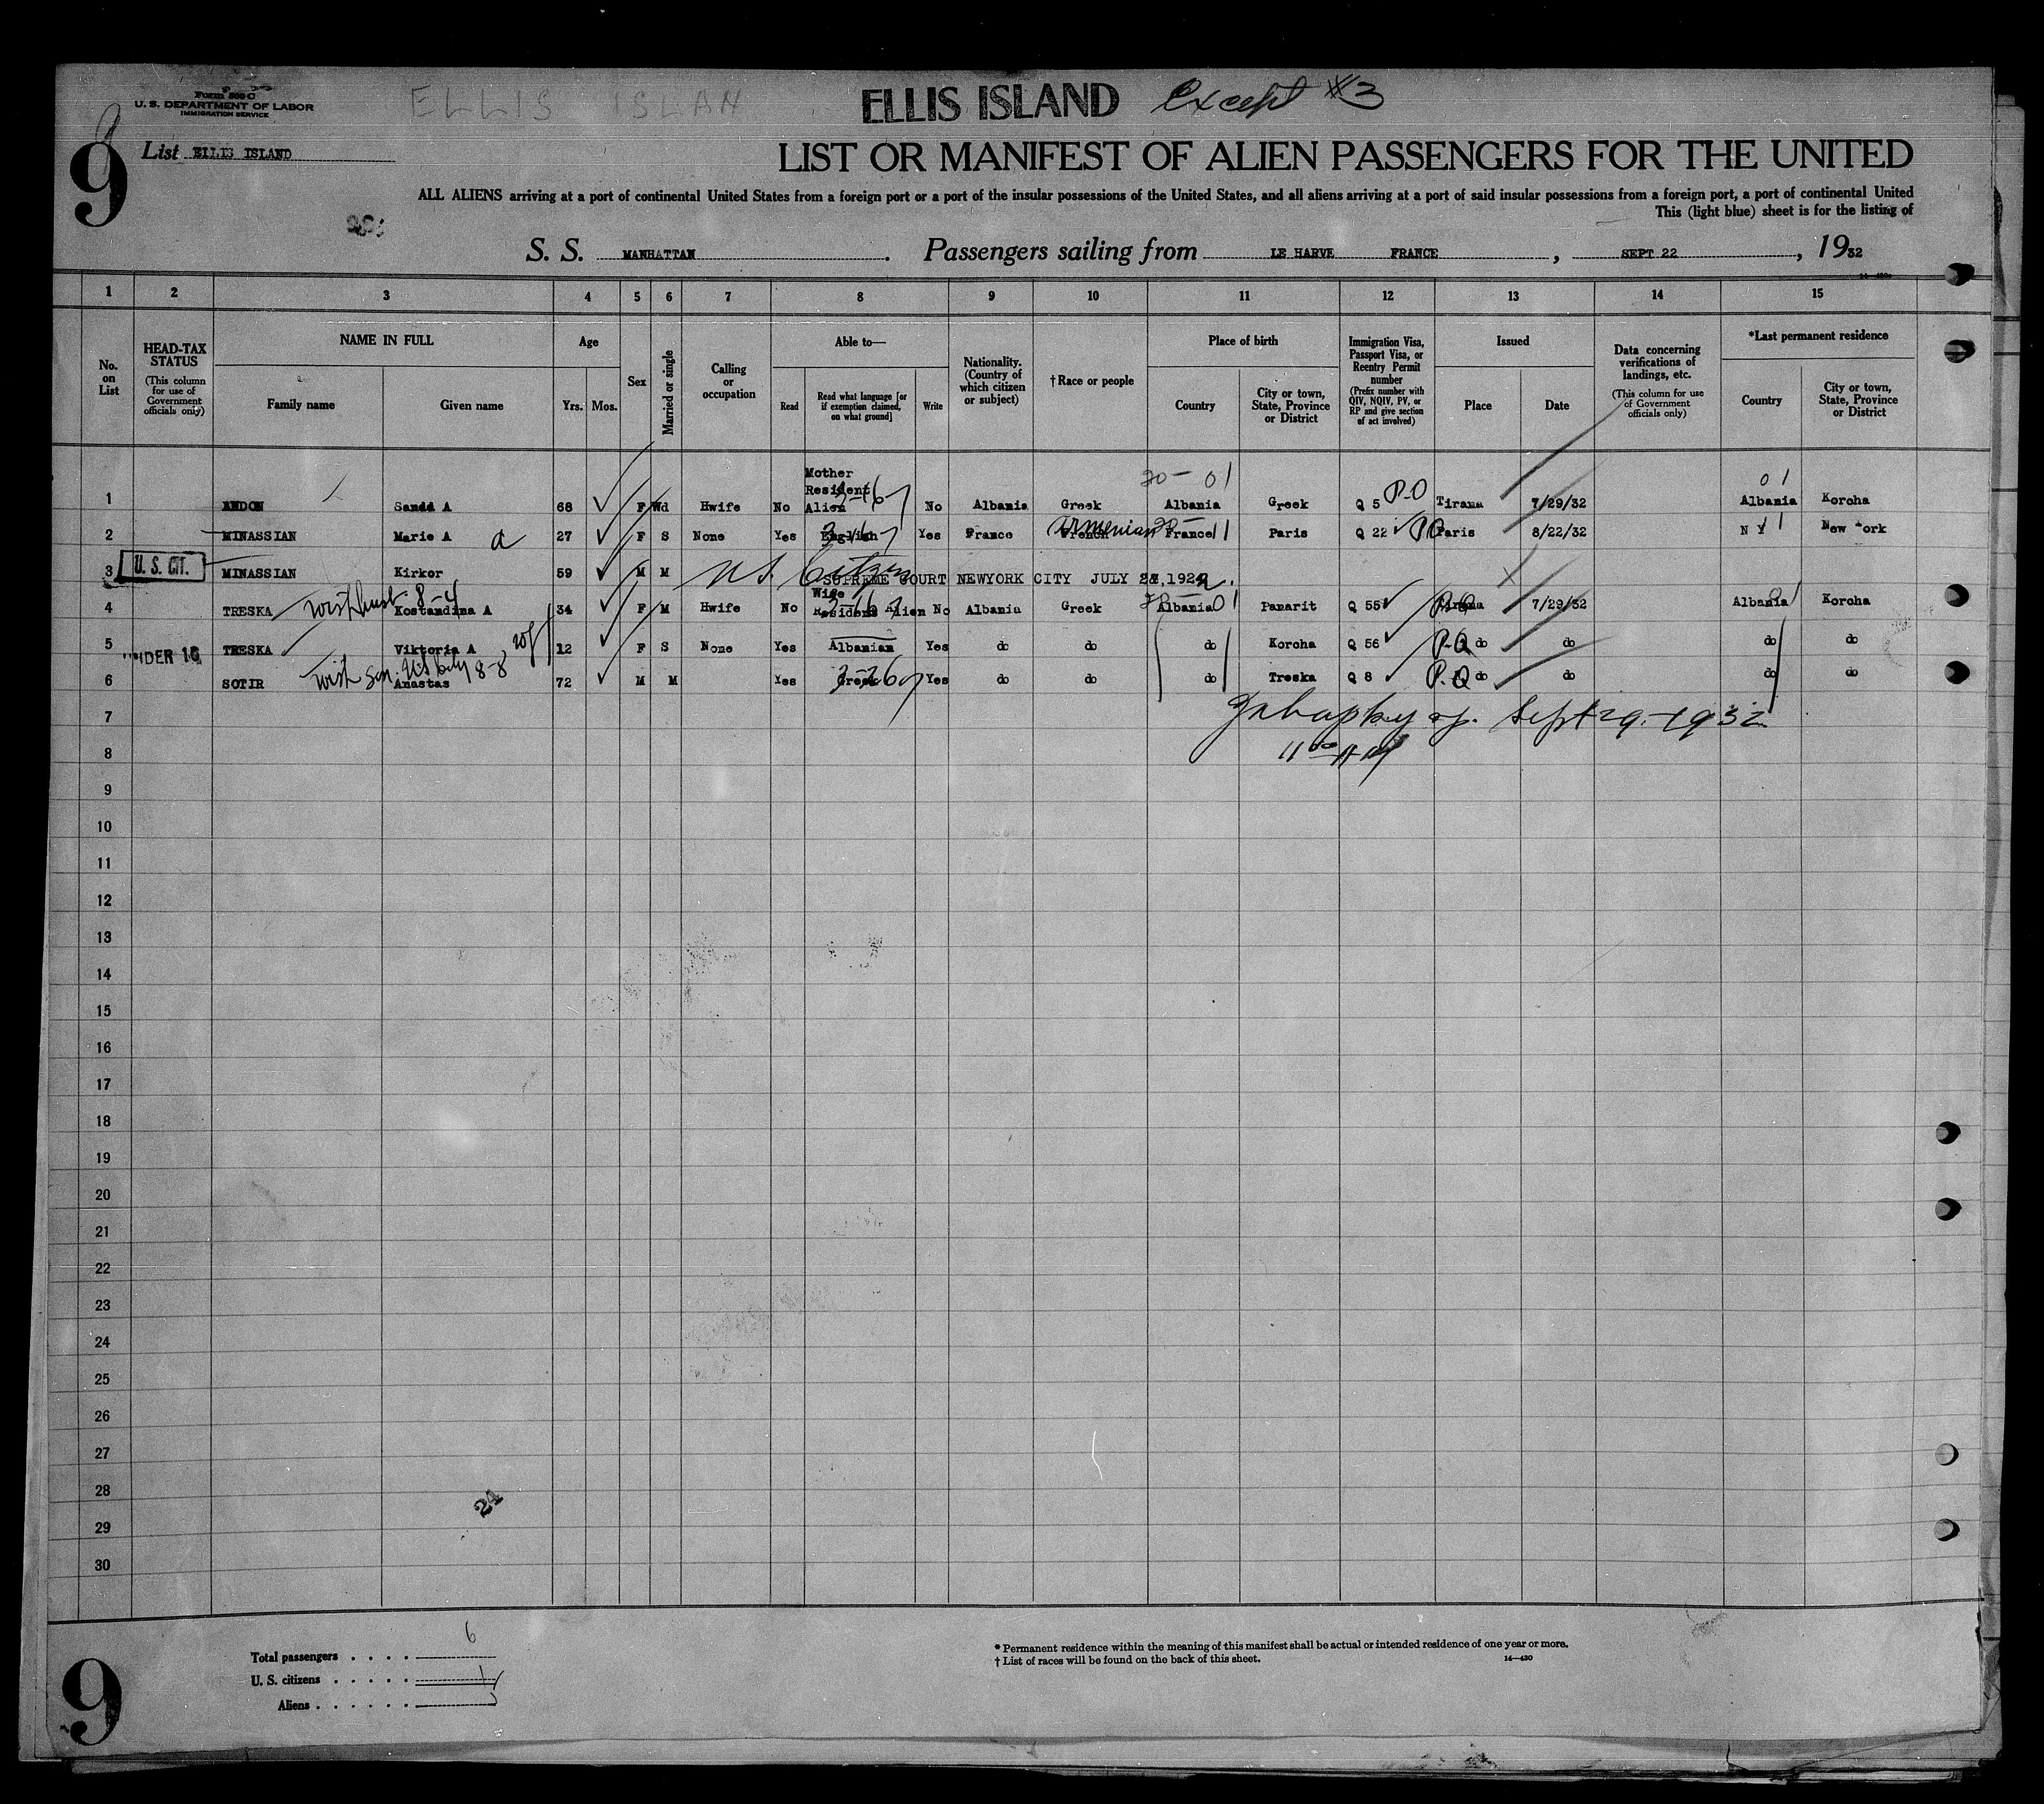 Form 500 C
U. S. DEPARTMENT OF LABOR
IMMIGRATION SERVICE
ELLIS ISLAN
ELLIS ISLAND Except #3
9
List ELLIS ISLAND
LIST OR MANIFEST OF ALIEN PASSENGERS FOR THE UNITED
ALL ALIENS arriving at a port of continental United States from a foreign port or a port of the insular possessions of the United States, and all aliens arriving at a port of said insular possessions from a foreign port, a port of continental United
This (light blue) sheet is for the listing of
S. S. MANHATTAN. Passengers sailing from LE HARVE FRANCE, SEPT 22, 1932
1 2 3 4 5 6 7 8 9 10 11 12 13 14 15
No. on List
HEAD-TAX STATUS (This column for use of Government officials only)
NAME IN FULL
Family name Given name
Age
Yrs. Mos.
Sex
Married or single
Calling or occupation
Able to—
Read Read what language [or if exemption claimed, on what ground] Write
Nationality. (Country of which citizen or subject)
†Race or people
Place of birth
Country City or town, State, Province or District
Immigration Visa, Passport Visa, or Reentry Permit number (Prefix number with QIV, NQIV, PV, or RP and give section of act involved)
Issued
Place Date
Data concerning verifications of landings, etc. (This column for use of Government officials only)
*Last permanent residence
Country City or town, State, Province or District
20- 01 01
1 ANDON Sandd A 68 F Wd Hwife No Mother Resident Alien No Albania Greek Albania Greek Q 5 P.O Tirana 7/29/32 Albania Korcha
2 MINASSIAN Marie A a 27 F S None Yes English Yes France French Armenian France 11 Paris Q 22 Paris 8/22/32 N Y New York
3 U. S. CIT. MINASSIAN Kirkor 59 M M U.S. Citizen SUPREME COURT NEWYORK CITY JULY 1922.
4 TRESKA 8-4 Kostandina A 34 F M Hwife No Wife Resident Alien No Albania Greek Albania 01 Panarit Q 55 Tirana 7/29/32 Albania Korcha
5 UNDER 16 TRESKA Viktoria A 12 F S None Yes Albanian Yes do do do Korcha Q 56 P.Q do do do do
6 SOTIR 8-8 Anastas 72 M M Yes Greek Yes do do do Treska Q 8 P.Q do do do do
7 Sept 29-1932
8
9
10
11
12
13
14
15
16
17
18
19
20
21
22
23
24
25
26
27
28
24
29
30
Total passengers . . . . 6
U. S. citizens . . . . . 1
Aliens . . . . . . 5
* Permanent residence within the meaning of this manifest shall be actual or intended residence of one year or more.
† List of races will be found on the back of this sheet. 14—430
9